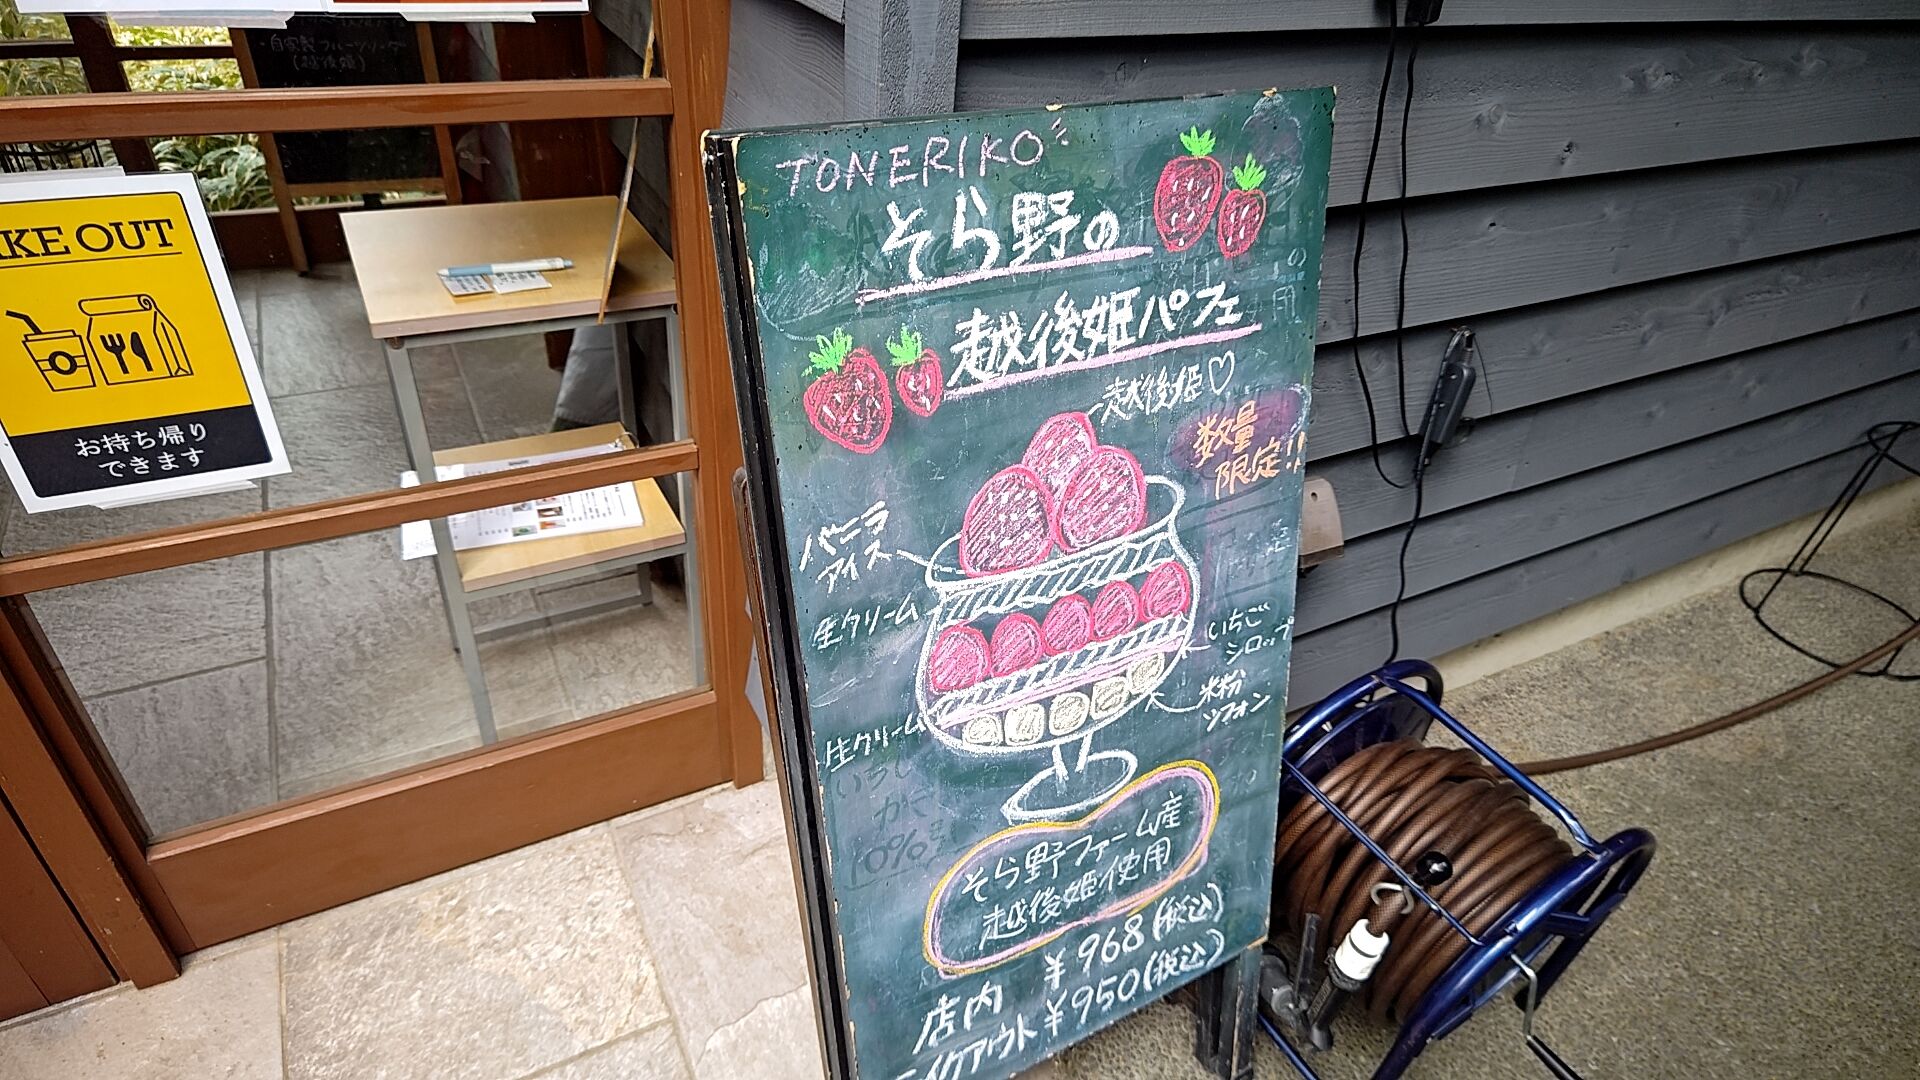 ・自家製フルーツソーダ
(越後姫)
KE OUT
お持ち帰り
できます
TONERIKO
そら野の
越後姫パフェ
越後姫♡
数量
限定!!
バニラ
アイス
生クリーム
いちご
シロップ
米粉
シフォン
生クリーム
10%
そら野ファーム産
越後姫使用
店内 ¥968(税込)
イクアウト ¥950(税込)